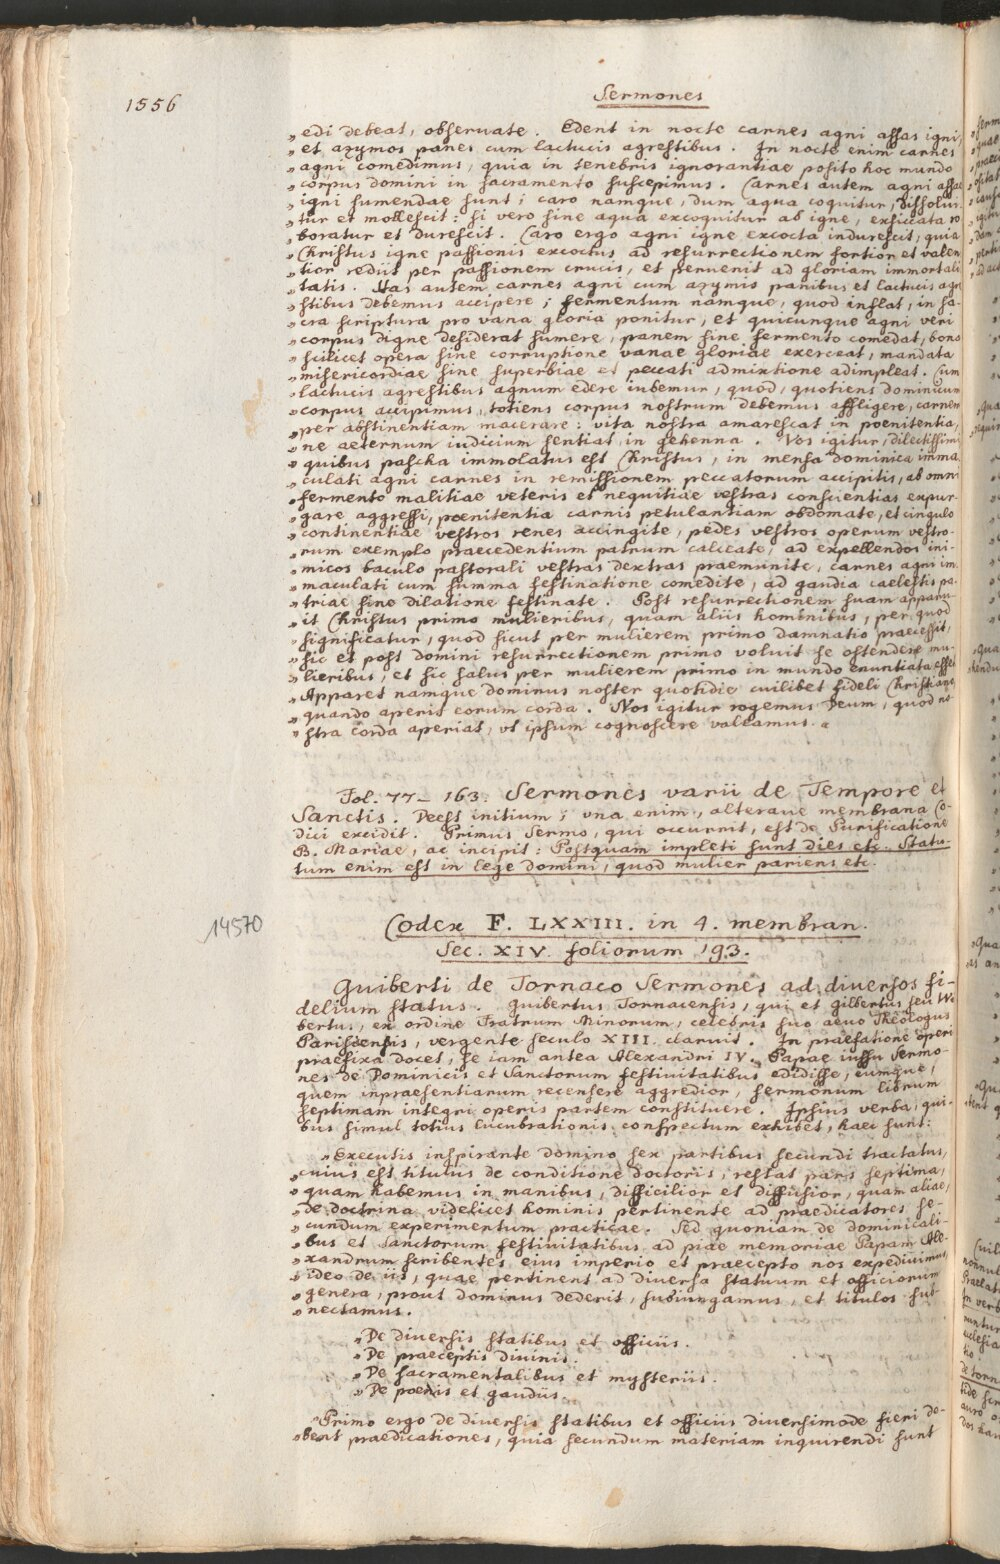 1556
Sermones
„edi debeat, obseruate. Edent in nocte carnes agni assas igni,
„et azymos panes cum lactucis agrestibus. In nocte enim carnes
„agni comedimus, quia in tenebris ignorantiae posito hoc mundo
„corpus domini in sacramento suscepimus. Carnes autem agni assae
„igni sumendae sunt; caro namque, dum aqua coquitur, dissolui-
„tur et mollescit: si vero sine aqua excoquitur ab igne, exsiccata ro
„boratur et durescit. Caro ergo agni igne excocta indurescit, quia
„Christus igne passionis excoctus ad resurrectionem fortior et valen
„tior rediit per passionem crucis, et peruenit ad gloriam immortali
„tatis. Has autem carnes agni cum azymis panibus et lactucis agre
„stibus debemus accipere; fermentum namque, quod inflat, in sa-
„cra scriptura pro vana gloria ponitur, et quicunque agni veri
„corpus digne desiderat sumere, panem sine fermento comedat, bona
„scilicet opera sine corruptione vanae gloriae exerceat, mandata
„misericordiae sine superbiae et peccati admixtione adimpleat. Cum
„lactucis agrestibus agnum edere iubemur, quod, quotiens dominicum
„corpus accipimus, totiens corpus nostrum debemus affligere, carnem
„per abstinentiam macerare: vita nostra amarescat in poenitentia,
„ne aeternum iudicium sentiat in gehenna. Vos igitur, dilectissimi
„quibus pascha immolatus est Christus, in mensa dominica imma
„culati agni carnes in remissionem peccatorum accipitis, ab omni
„fermento malitiae veteris et nequitiae vestras conscientias expur-
„gare aggressi, poenitentia carnis petulantiam obdomate, et cingulo
„continentiae vestros renes accingite, pedes vestros operum vestro-
„rum exemplo praecedentium patrum calceate, ad expellendos ini-
„micos baculo pastorali vestras dextras praemunite, carnes agni im
„maculati cum summa festinatione comedite, ad gaudia caelestis pa-
„triae sine dilatione festinate. Post resurrectionem suam apparu-
„it Christus primo mulieribus, quam aliis hominibus, per quod
„significatur, quod sicut per mulierem primo damnatio praecessit,
„sic et post domini resurrectionem primo voluit se ostendere mu-
„lieribus, et sic salus per mulierem primo in mundo enuntiata esset
„Apparet namque dominus noster quotidie cuilibet fideli Christiano,
„quando aperit eorum corda. Nos igitur rogemus Deum, quod no-
„stra corda aperiat, vt ipsum cognoscere valeamus.“
Fol. 77 – 163. Sermones varii de Tempore et
Sanctis. Deest initium; vna enim, alteraue membrana Co-
dici excidit. Primus Sermo, qui occurrit, est de Purificatione
B. Mariae, ac incipit: Postquam impleti sunt dies etc. Statu-
tum enim est in lege domini, quod mulier pariens etc.
14570
Codex F. LXXIII. in 4. membran.
Sec. XIV. foliorum 193.
Guiberti de Tornaco Sermones ad diuersos fi-
delium status. Guibertus Tornacensis, qui et Gilbertus seu Wi
bertus, ex ordine Fratrum Minorum, celebris suo aeuo Theologus
Parisiensis, vergente seculo XIII. claruit. In praefatione operi
praefixa docet, se iam antea Alexandri IV. Papae iussu Sermo-
nes de Dominicis et Sanctorum festiuitatibus edidisse, eumque,
quem inpraesentiarum recensere aggredior, sermonum librum
septimam integri operis partem constituere. Ipsius verba, qui-
bus simul totius lucubrationis conspectum exhibet, haec sunt:
„Executis inspirante domino sex partibus secundi tractatus,
„cuius est titulus de conditione doctoris, restat pars septima,
„quam habemus in manibus, difficilior et diffusior, quam aliae,
„de doctrina videlicet hominis pertinente ad praedicatores se-
„cundum experimentum practicae. Sed quoniam de dominicali-
„bus et Sanctorum festiuitatibus ad piae memoriae Papam Ale-
„xandrum scribentes eius imperio et praecepto nos expediuimus,
„ideo de iis, quae pertinent ad diuersa statuum et officiorum
„genera, prout dominus dederit, subiungamus, et titulos sub-
„nectamus.
„De diuersis statibus et officiis.
„De praeceptis diuinis.
„De sacramentalibus et mysteriis.
„De poenis et gaudiis.
„Primo ergo de diuersis statibus et officiis diuersimode fieri de-
„bent praedicationes, quia secundum materiam inquirendi sunt